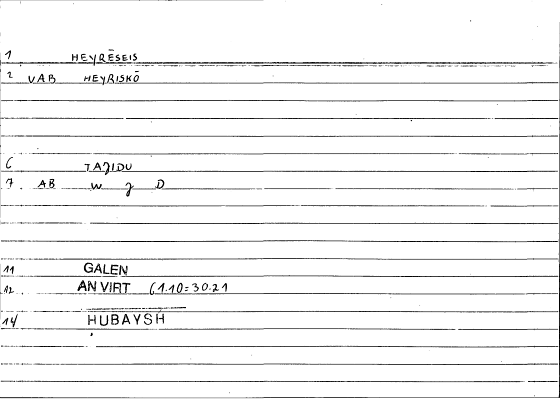 1 HEYRĒSEIS
2 VAB HEYRISKŌ
6 TAJIDU
7. AB W J D
11 GALEN
12. AN VIRT (1.10=30.21
14 HUBAYSH